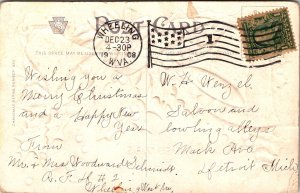 POST CARD
WHEELING
DEC 23
4-30P
1908
W.VA.
1
THIS SPACE MAY BE USED
Wishing you a
Merry Christmas
and a Happy New
Year
From
Mr & Mrs Woodward Schmidt
R.F.D. # 2.
Wheeling W.Va.
W. H. Wenzel
Saloon and
bowling alleys
Mack Ave
Detroit Mich